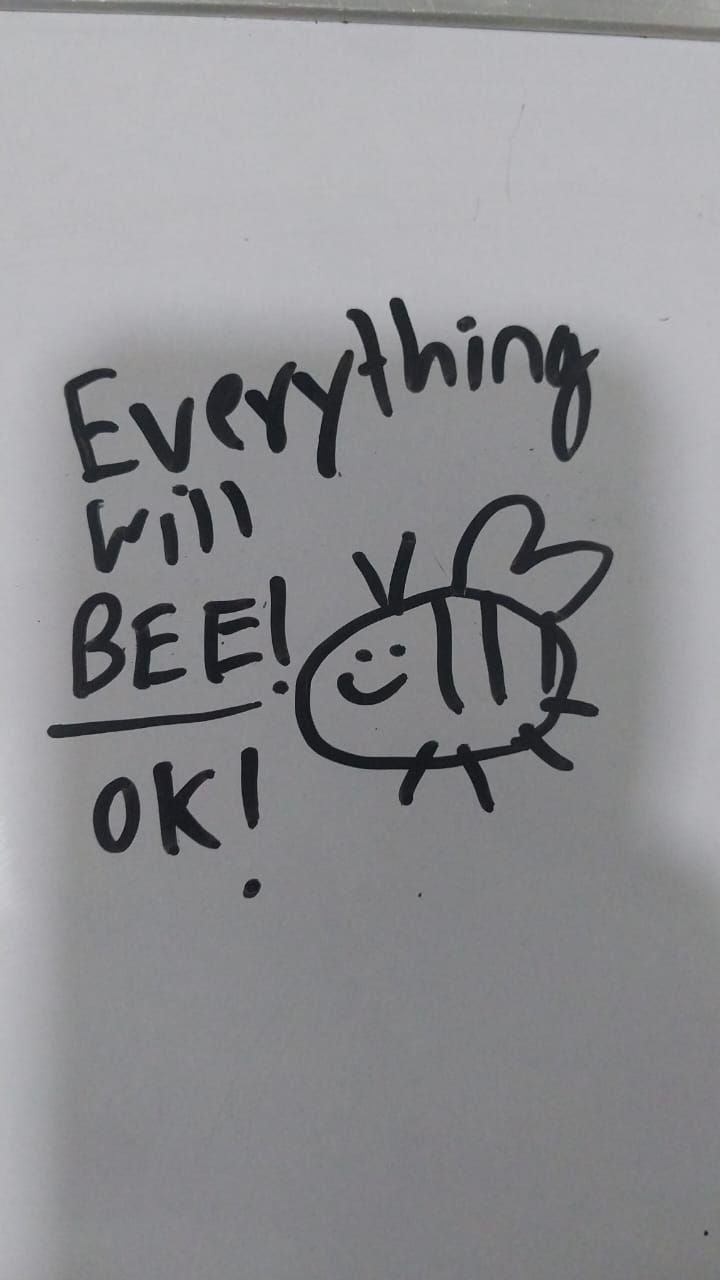 Everything
will
BEE!
OK!